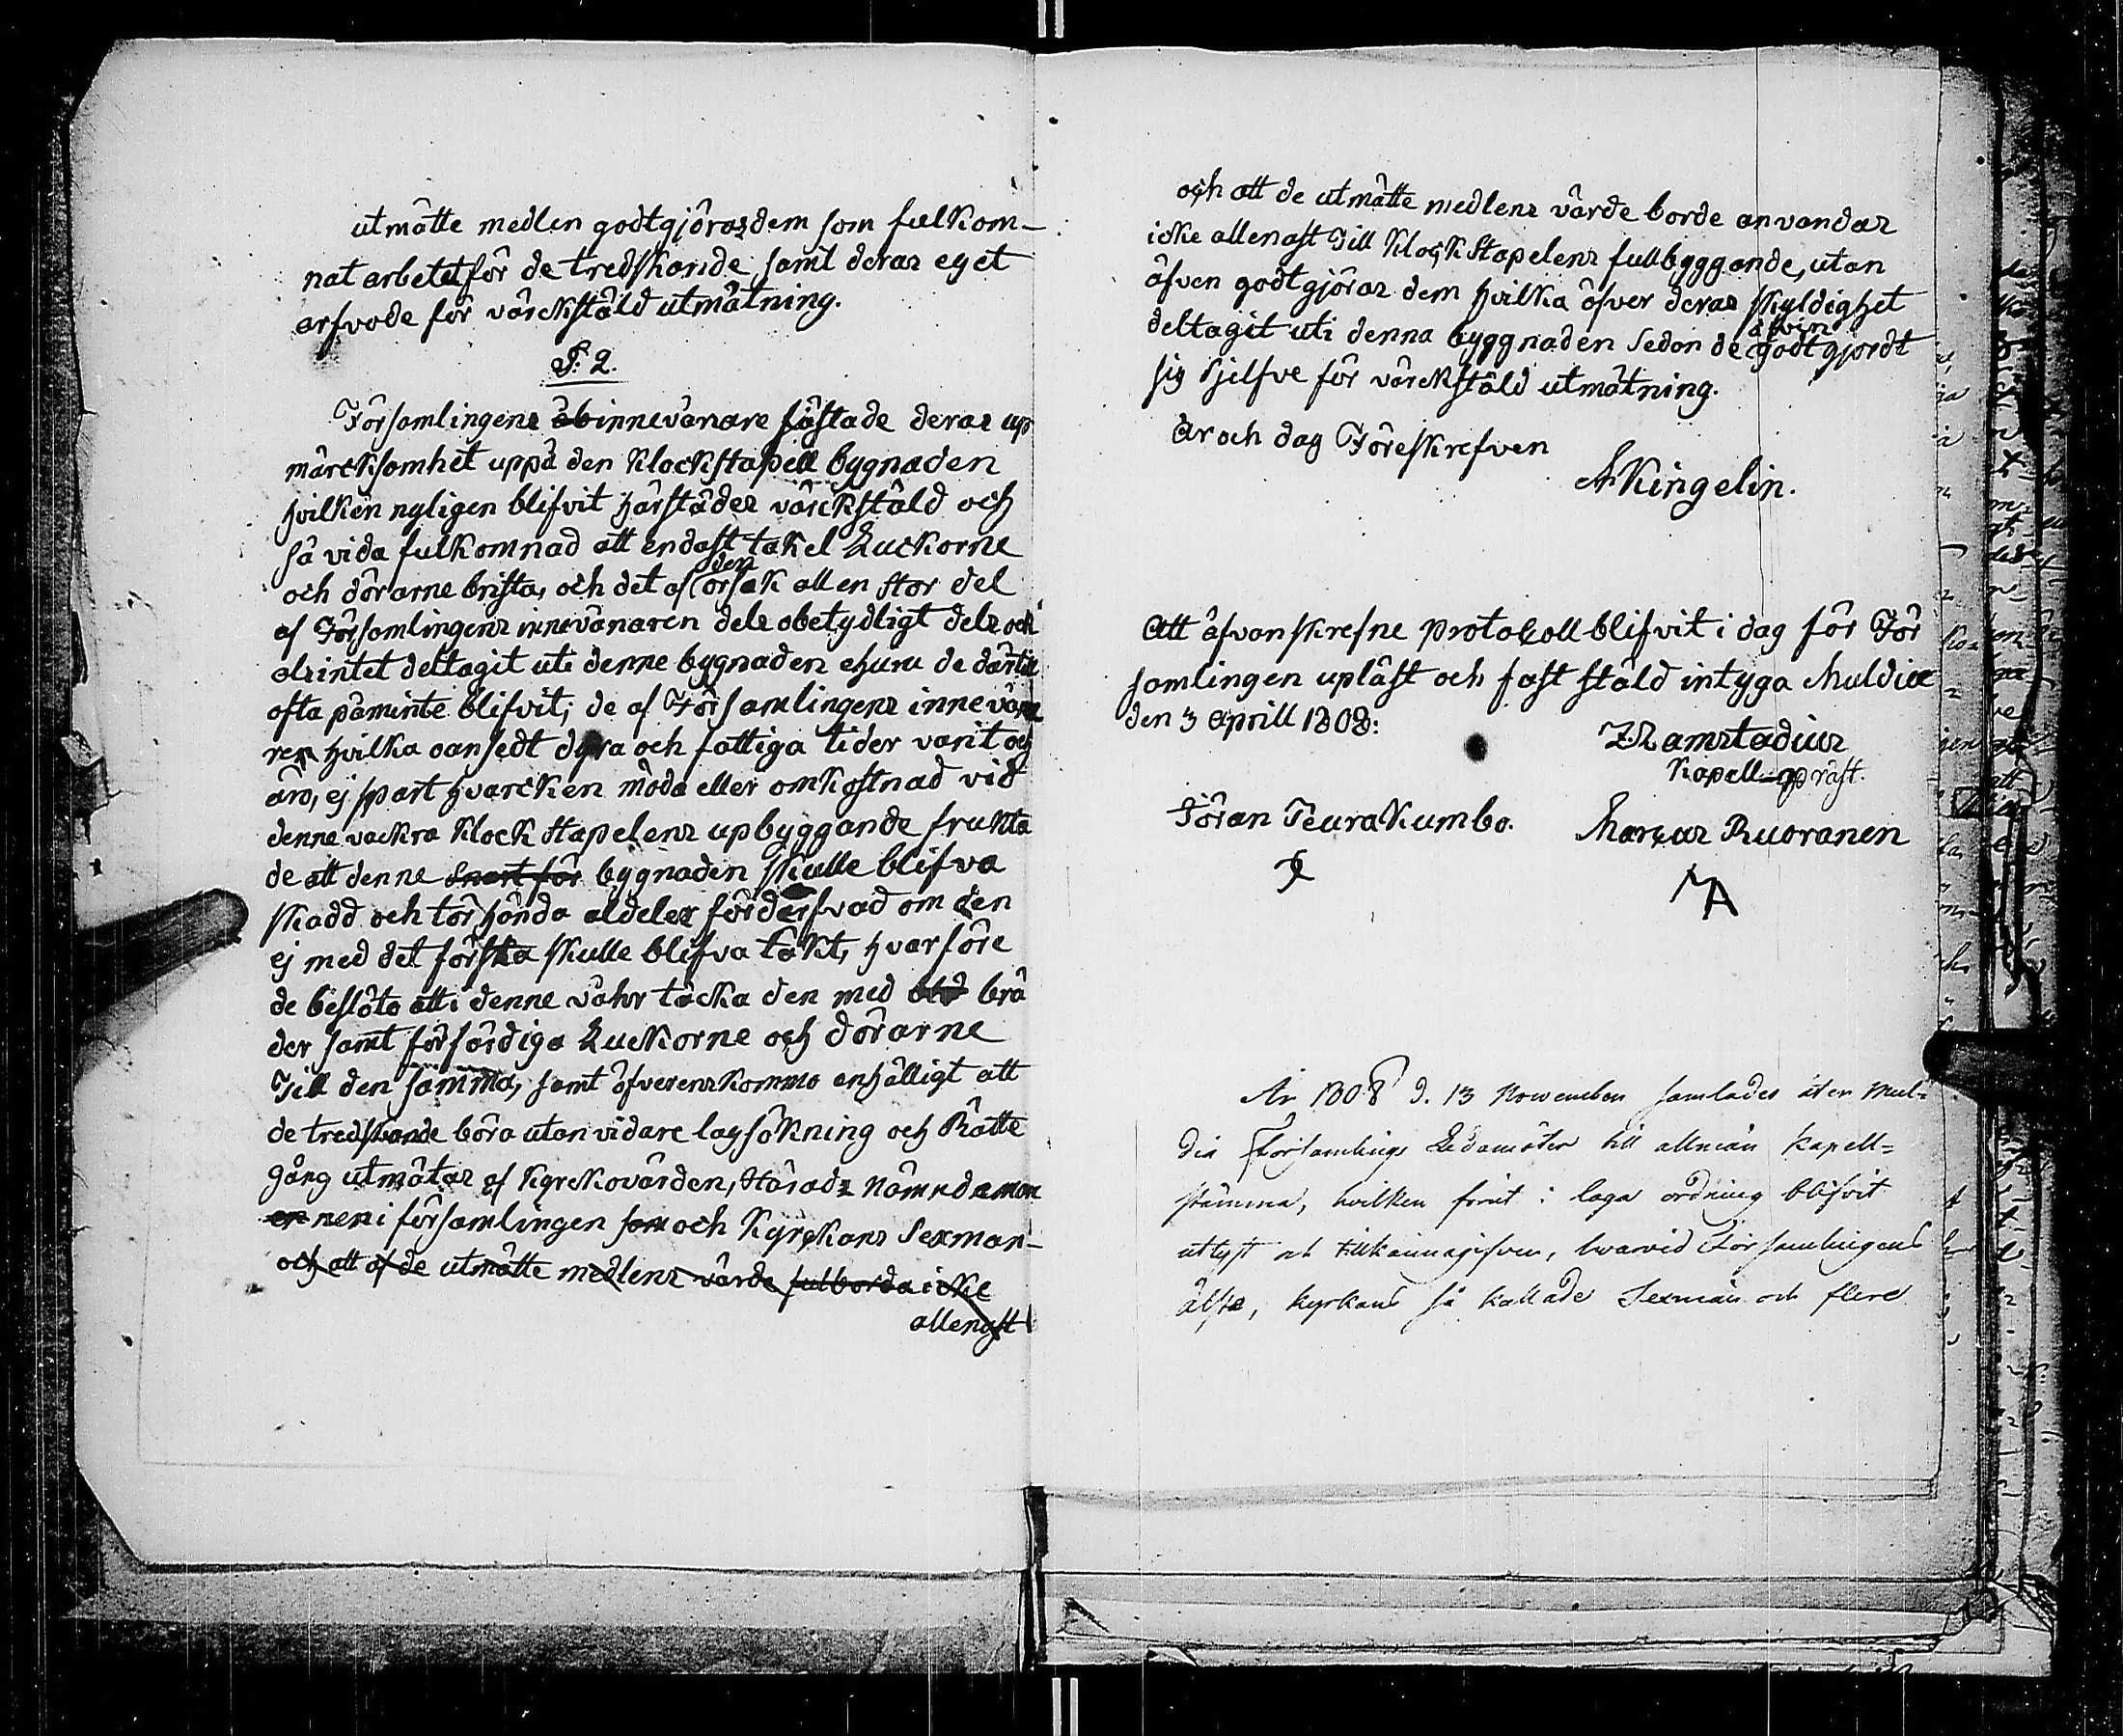 utmätte medlen godtgjöras dem som fulkom-
nat arbetet för de tredskande samt deras eget
arfvode för värckstäld utmätning.
§. 2.
Församlingens åbinnevånare fästade deras up
märcksomhet uppå den Klockstapell bygnaden
hvilken nyligen blifvit härstädes värckstäld och
så vida fulkomnad att endast taket Luckorne
och dörarne brista, och det af den orsak att en stor del
af Församlingens innevånaren dels obetydligt dels och
alsintet deltagit uti denne bygnaden ehuru de därtill
ofta påminte blifvit; de af Församlingens innevåna
ren hvilka oansedt dyra och fattiga tider varit och
äro, ej spart hvarcken möda eller omkostnad vid
denne vackra Klockstapelens upbyggande frukta
de att denne snart för bygnaden skulle blifva
skadd och törhända aldeles förderfvad om den
ej med det första skulle blifva täkt, hvarföre
de beslöto att i denne våhr täcka den med brä
der samt förfärdiga Luckorne och dörarne
Till den samma, samt öfverenskommo enhälligt att
de tredskande böra utan vidare lagsökning och Rätte
gång utmätas af Kyrckovärden, Härads Nämndeman
en nen i församlingen som och Kyrckans Sexman-
och att af de utmätte medlens värde fulborda icke
allenast
och att de utmätte medlens värde borde användas
icke allenast Till Klockstapelens fullbyggande, utan
äfven godtgjöras dem hvilka öfver deras skyldighet
deltagit uti denna byggnaden sedan de äfvin godtgjordt
sig sjelfve för värckstäld utmätning.
År och dag Föreskrefven
A Kingelin.
Att åfvanskrefne protocoll blifvit i dag för För
samlingen upläst och fast stäld intyga Muldia
den 3 Aprill 1808:
Z. Ramstadius
Kapell-präst.
Jöran Teurakumbo.
Marcus Ruoranen
MA
År 1808 d. 13 November samlades åter Mul-
dia Församlings Ledamöter till allmän kapell-
stämma, hvilken förut i laga ordning blifvit
utlyst och tillkännagifven, hvarvid Församlingens
älste, kyrkans så kallade Sexmän och flere